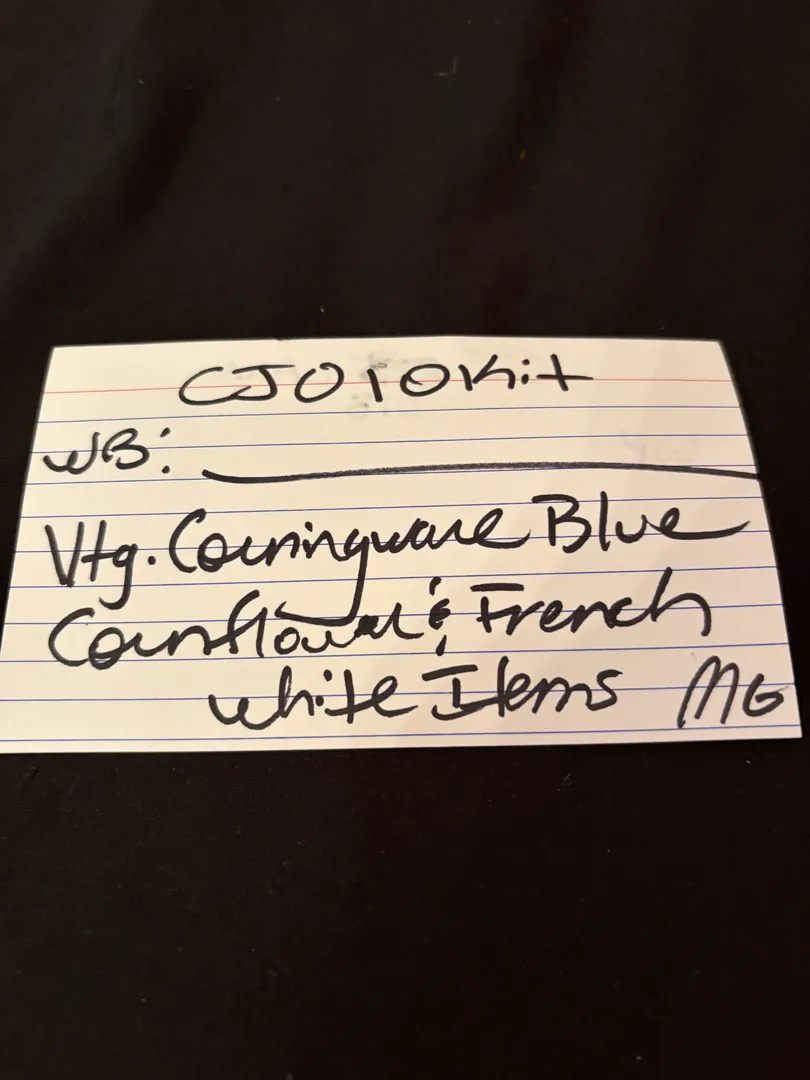 CJ010Kit
WB:
Vtg. Corningware Blue
Cornflower & French
white Items MG